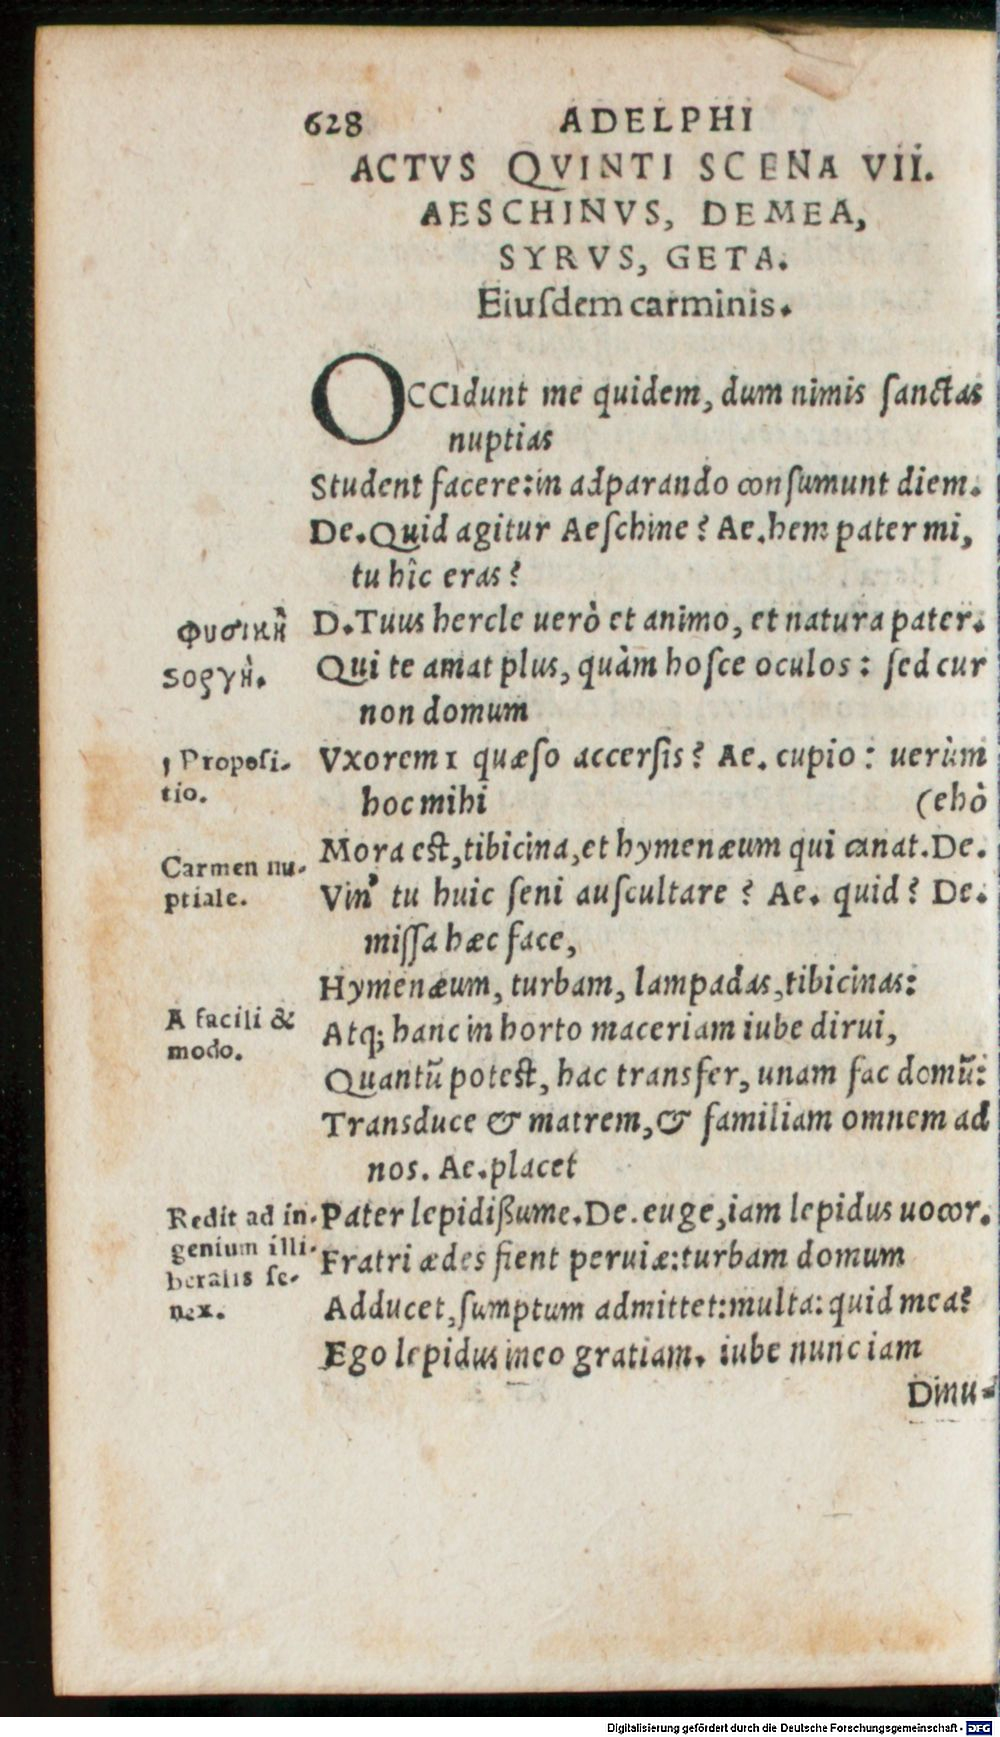 628 ADELPHI
ACTVS QVINTI SCENA VII.
AESCHINVS, DEMEA,
SYRVS, GETA.
Eiuſdem carminis.
OCCIdunt me quidem, dum nimis ſanctas
nuptias
Student facere:in adparando conſumunt diem.
De.Quid agitur Aeſchine? Ae.hem pater mi,
tu hîc eras?
φυσικὴ
D.Tuus hercle uerò et animo, et natura pater.
ϛοργὴ.
Qui te amat plus, quàm hoſce oculos: ſed cur
non domum
1 Propoſi-
Vxorem1 quæſo accerſis? Ae. cupio: uerùm
tio.
hoc mihi (ehò
Mora eſt,tibicina,et hymenæum qui canat.De.
Carmen nu-
ptiale.
Vin' tu huic ſeni auſcultare? Ae. quid? De.
miſſa hæc face,
Hymenæum, turbam, lampadas,tibicinas:
A facili &
Atq; hanc in horto maceriam iube dirui,
modo.
Quantũ poteſt, hac transfer, unam fac domũ:
Transduce & matrem,& familiam omnem ad
nos. Ae.placet
Redit ad in-
Pater lepidißume.De.euge,iam lepidus uocor.
genium illi-
Fratri ædes fient peruiæ:turbam domum
beralis ſe-
nex.
Adducet,ſumptum admittet:multa:quid mea?
Ego lepidus ineo gratiam. iube nunc iam
Dinu-
Digitalisierung gefördert durch die Deutsche Forschungsgemeinschaft - DFG